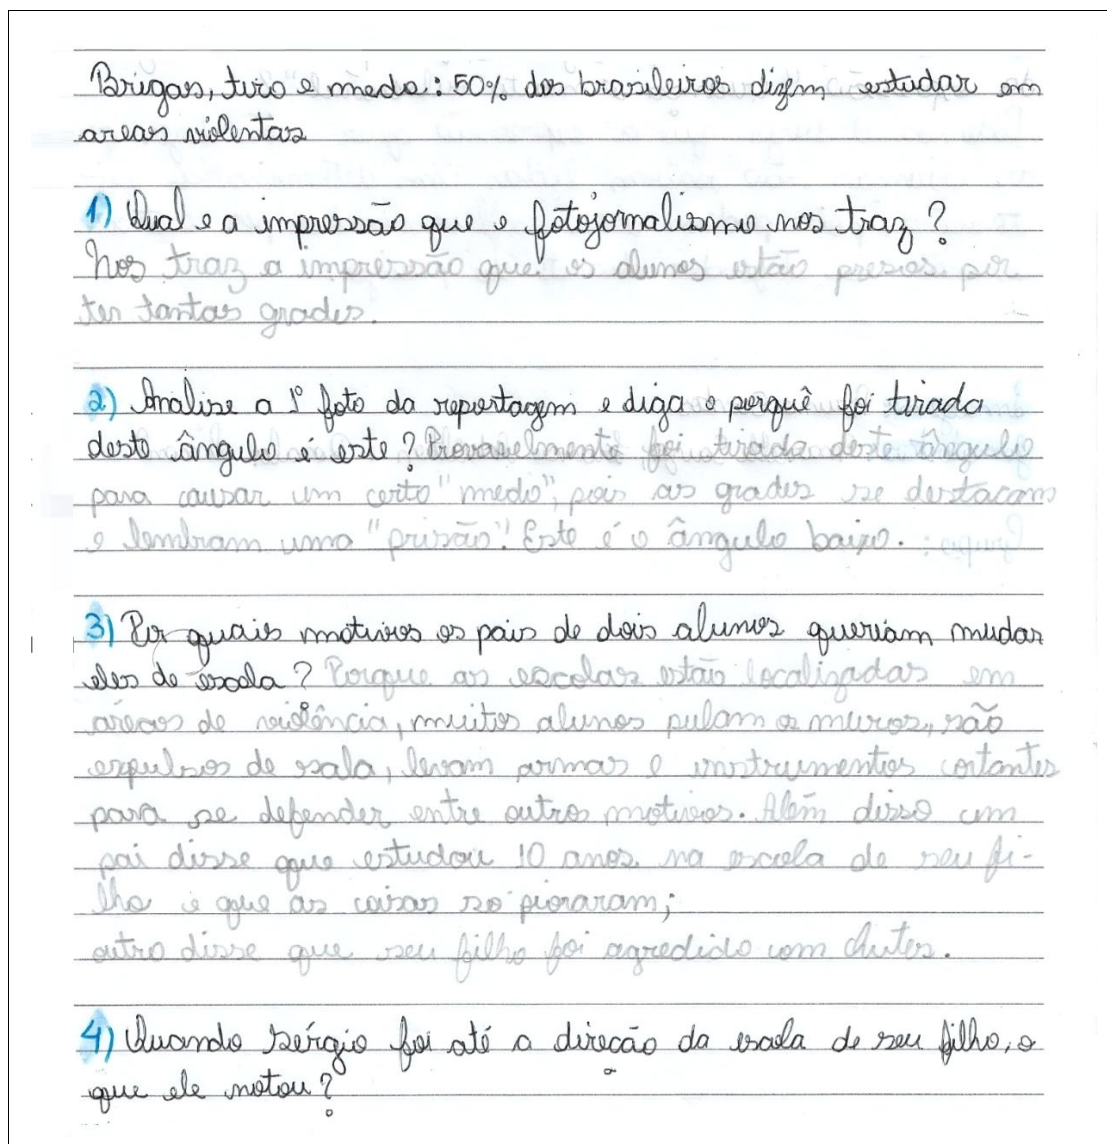 Brigas, tiro e medo: 50% dos brasileiros dizem estudar em
areas violentas
1) Qual e a impressão que o fotojornalismo nos traz?
Nos traz a impressão que os alunos estão presios por
ter tantas grades.
2) Analise a 1º foto da reportagem e diga o porquê foi tirada
deste ângulo é este? Provavelmente foi tirada deste ângulo
para causar um certo "medo", pois as grades se destacam
e lembram uma "prisão". Este é o ângulo baixo.
3) Por quais motivos os pais de dois alunos queriam mudar
eles de escola? Porque as escolas estão localizadas em
áreas de violência, muitos alunos pulam os muros, são
expulsos de sala, levam armas e instrumentos cortantes
para se defender entre outros motivos. Além disso um
pai disse que estudou 10 anos na escola de seu fi-
lho e que as coisas só pioraram;
outro disse que seu filho foi agredido com chutes.
4) Quando Sérgio foi até a direção da escola de seu filho, o
que ele notou?